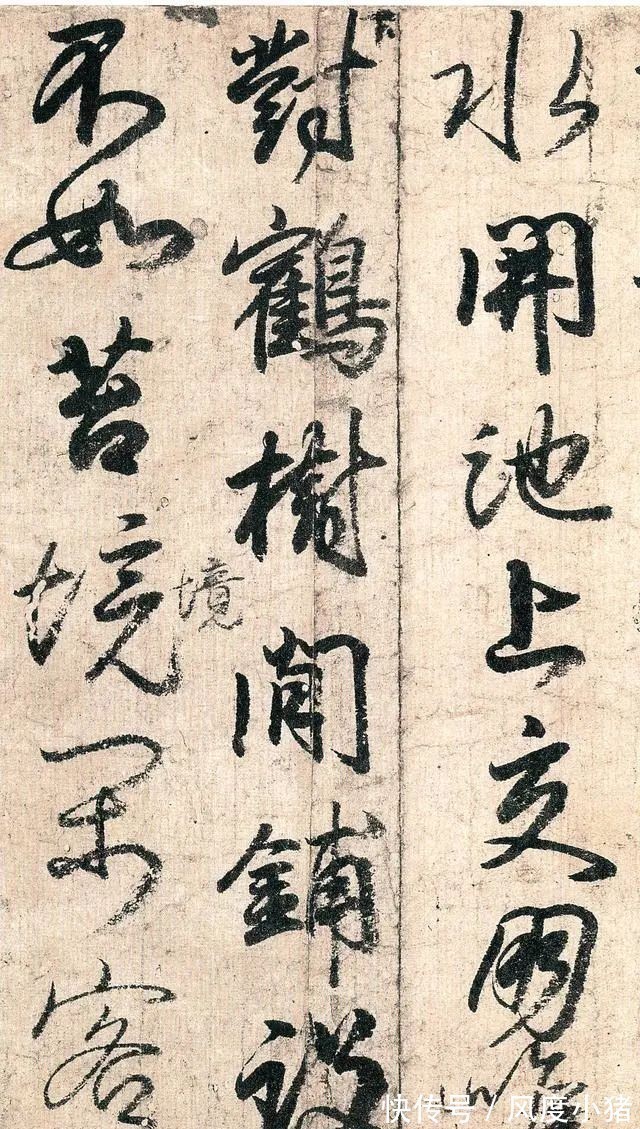 水開池上交朋
對鶴樹間鋪設
不如苔境閑客
境
快传号 / 风度小猪